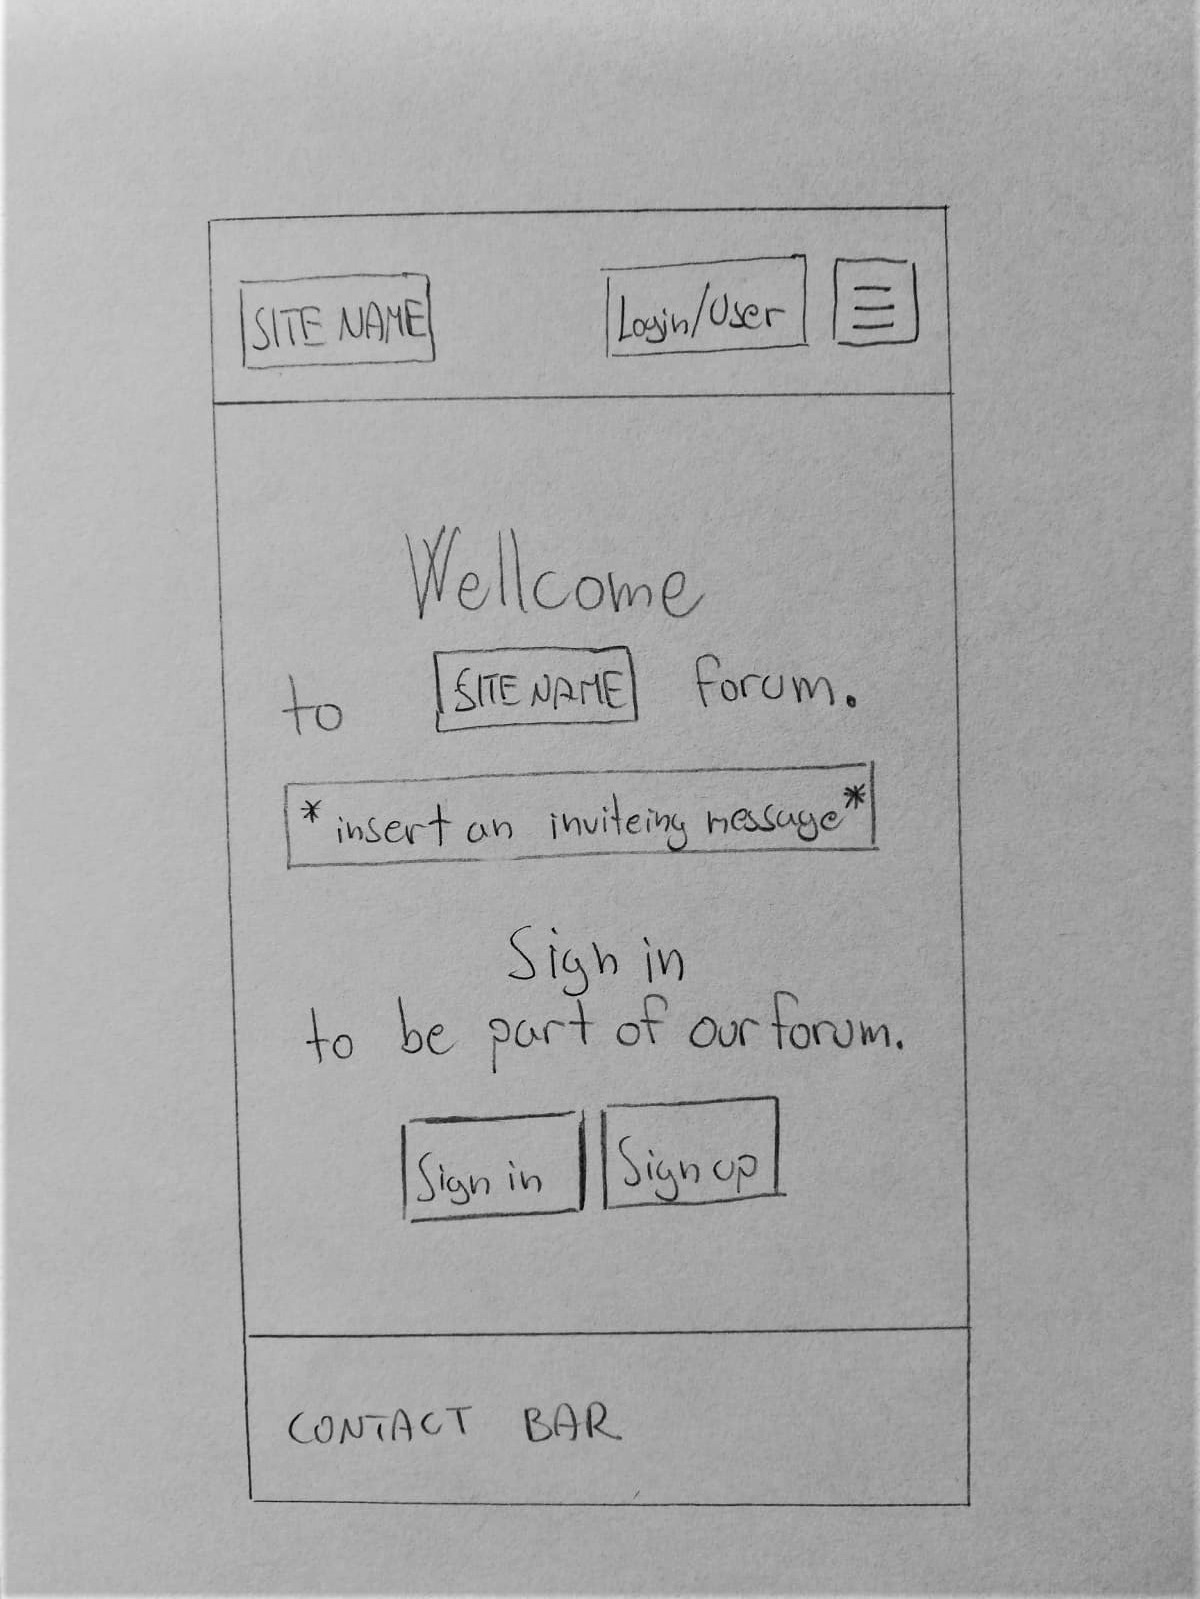 SITE NAME Login/User
Wellcome
to SITE NAME forum.
*insert an inviteing message*
Sign in
to be part of our forum.
Sign in Sign up
CONTACT BAR